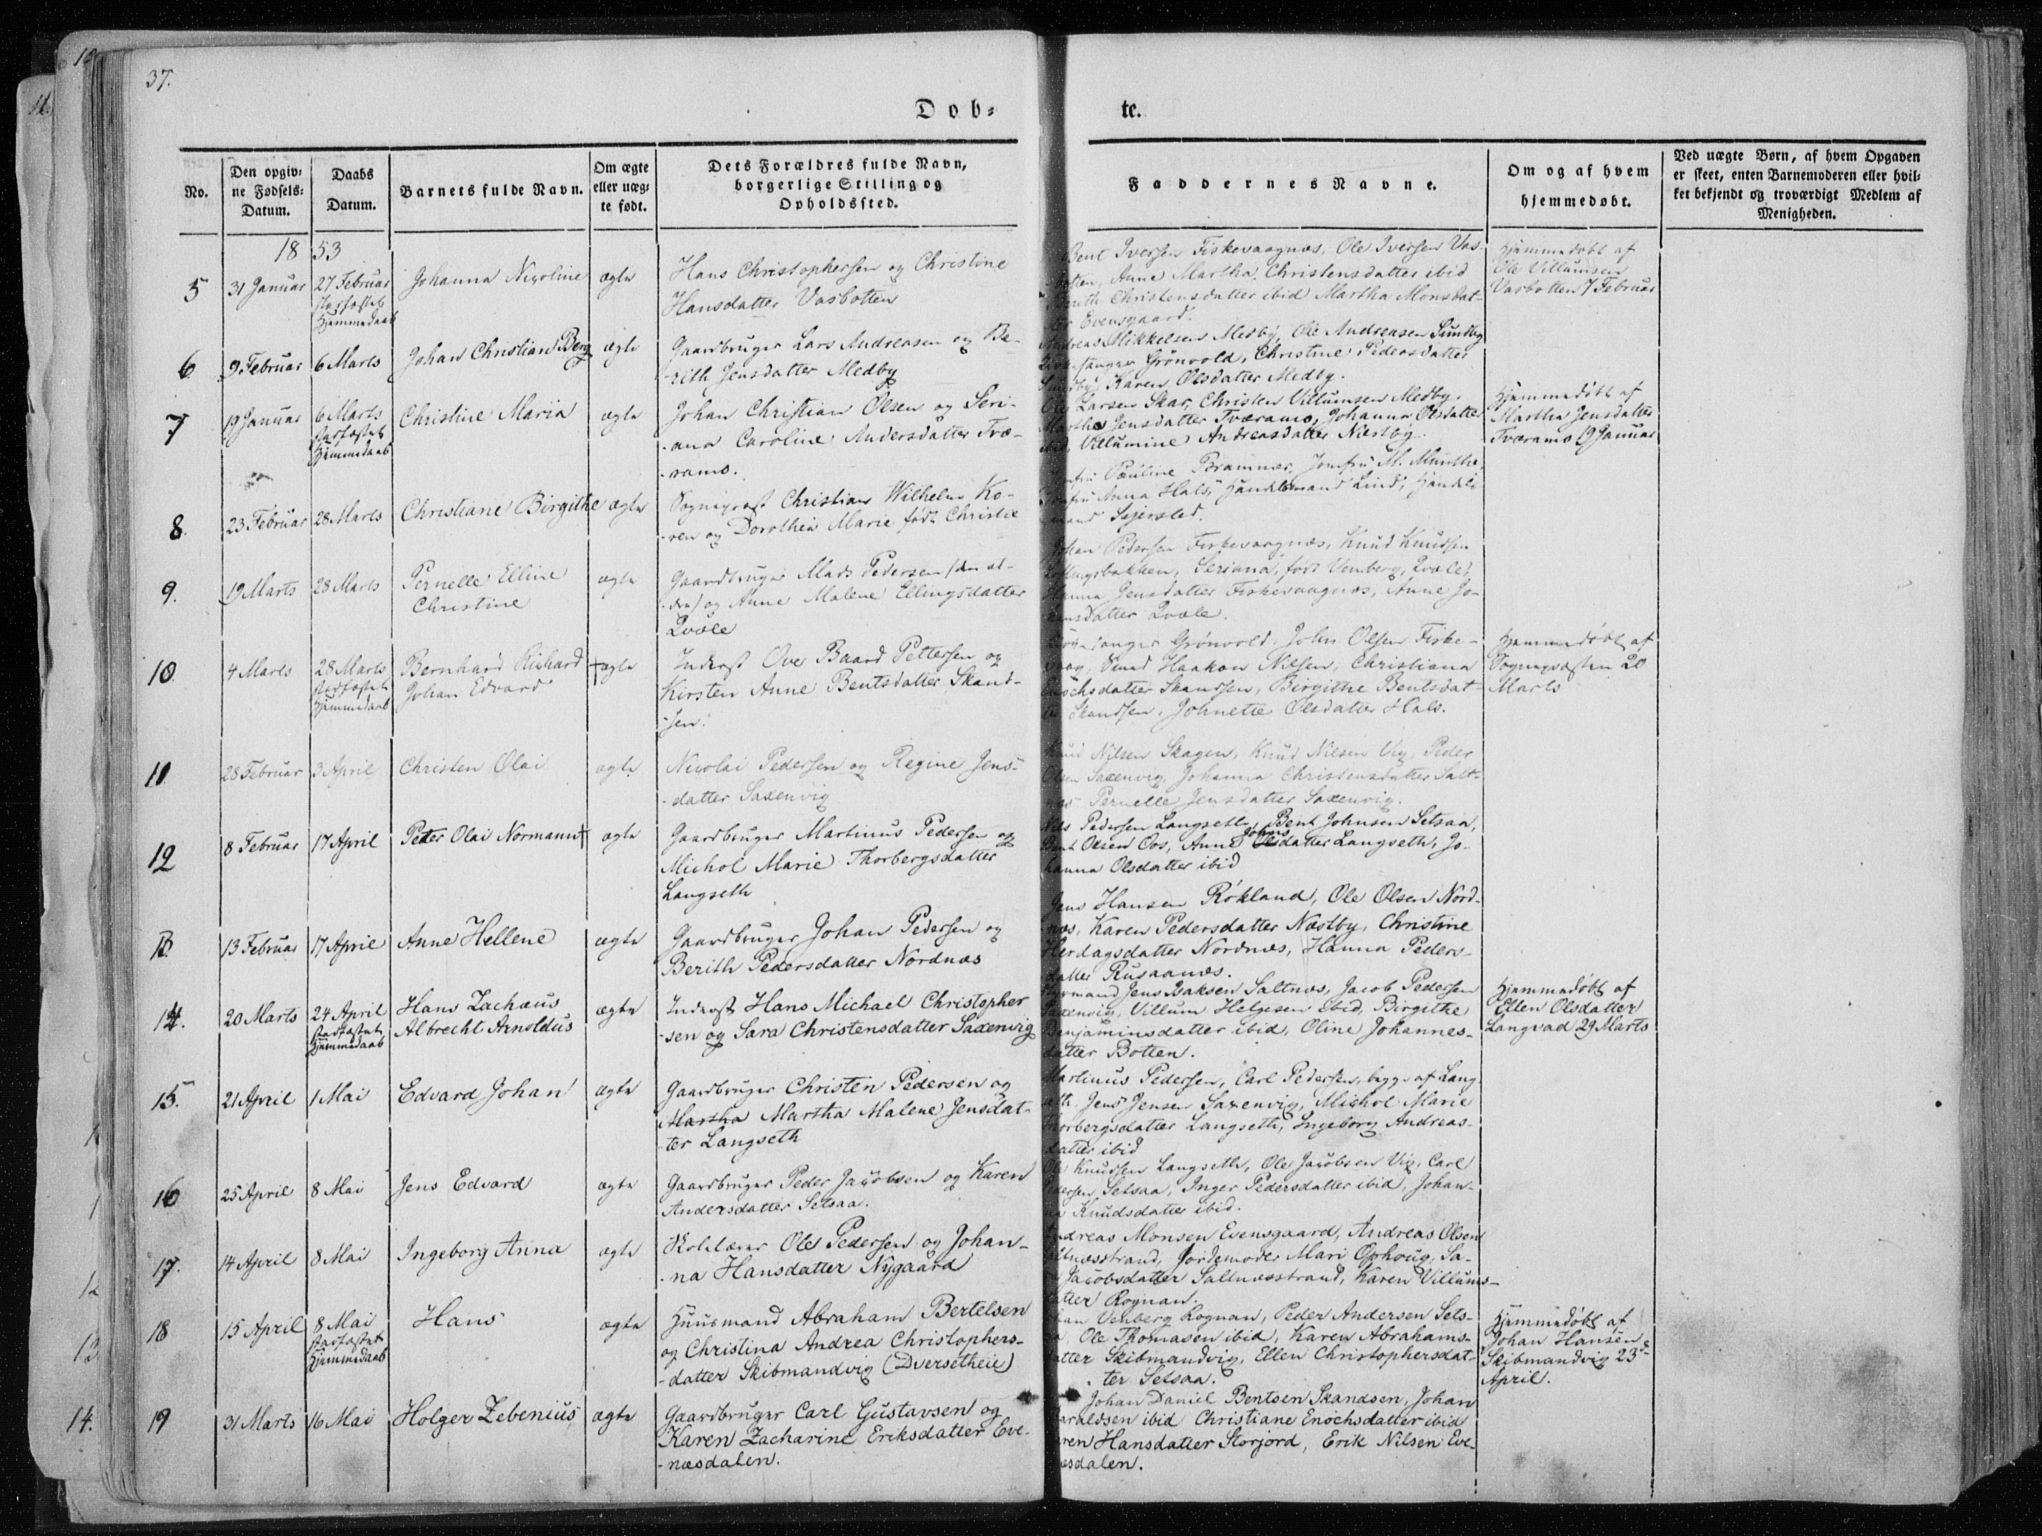 37.
Dob-
te.
No.
Den opgiv-
ne Fødsels-
Datum.
Daabs
Datum.
Barnets fulde Navn.
Om ægte
eller uæg-
te født.
Dets Forældres fulde Navn,
borgerlige Stilling og
Opholdssted.
Faddernes Navne.
Om og af hvem
hjemmedøbt.
Ved uægte Børn, af hvem Opgaven
er skeet, enten Barnemoderen eller hvil-
ket bekjendt og troværdigt Medlem af
Menigheden.
1853
5
31 Januar
27 Februar
stadfæstet
Hjemmedaab
Johanna Nicoline
ægte
Hans Christophersen og Christine
Hansdatter Vasbotten
Bent Iversen Fiskevaagnæs, Ole Iversen Vas-
botten, Anne Martha Christensdatter ibid
Christensdatter ibid Martha Monsdat-
ter Evensgaard.
Hjemmedøbt af
Ole Villumsen
Vasbotten 7 Februar
6
9 Februar
6 Marts
Johan Christian Berg
ægte
Gaardbruger Lars Andreasen og Be-
-rith Jensdatter Medby
Andreas Mikkelsen Medby, Ole Andreasen Sundby
Grönvold, Christine Pedersdatter
Karen Olsdatter Medby.
7
19 Januar
6 Marts
stadfæstet
Hjemmedaab
Christine Maria
ægte
Johan Christian Olsen og Seri-
-ana Caroline Andersdatter Tvæ-
-ramo.
Ole Larsen Skar, Christen Villumsen Medby,
Martha Jensdatter Tværamo, Johanna Olsdatter
ibid, Villumine Andreasdatter Næstby.
Hjemmedøbt af
Martha Jensdatter
Tværamo 19 Januar
8
23 Februar
28 Marts
Christiane Birgithe
ægte
Sognepræst Christian Wilhelm Ko-
-ren og Dorothea Marie født Christie
Jomfru Pauline Brammer, Jomfru M. Munthe,
Jomfru Anna Hals, Handelsmand Lind, Handels
mand Sejersted.
9.
19 Marts
28 Marts
Pernelle Elline
Christine
ægte
Gaardbruger Mads Pedersen (den æl-
-dre) og Anne Malene Ellingsdatter
Qvæle
Johan Pedersen Fiskevaagnæs, Knud Knudsen
Seriana, født Venberg, Qvæle,
Hanna Jensdatter Fiskevaagnæs, Anne Jo-
hansdatter Qvæle.
10
4 Marts
28 Marts
stadfæstet
Hjemmedaab
Bernhard Richard
Johan Edvard
ægte
Inderst Ove Baard Pettersen og
Kirsten Anne Bentsdatter Skand-
-sen.
Kirkesanger Grönvold, John Olsen Fiske-
vaag, Haakon Nilsen, Christiana
Enochsdatter Skandsen, Birgithe Bentsdat-
ter Skandsen, Johnette Olsdatter Hals.
Hjemmedøbt af
Sognepræsten 20
Marts
11
28 Februar
3 April
Christen Olai
ægte
Nicolai Pedersen og Regine Jens-
-datter Saxenvig
Knud Nilsen Skagen, Knud Nilsen Vig, Peder
Olsen Saxenvig, Johanna Christensdatter Salt-
næs Pernelle Jensdatter Saxenvig.
12
8 Februar
17 April
Peder Olai Normann
ægte
Gaardbruger Martinus Pedersen og
Michol Marie Thorbergsdatter
Langseth
Nils Pedersen Langseth, Bent Johnsen Setsaa,
Bent Olsen Oos, Anne Johnsdatter Langseth, Jo-
hanna Olsdatter ibid
13
13 Februar
17 April
Anne Hellene
ægte
Gaardbruger Johan Pedersen og
Berith Pedersdatter Nordnæs
Jens Hansen Røkland, Ole Olsen Nord-
næs, Karen Pedersdatter Næstby, Christine
Herdagsdatter Nordnæs, Hanna Peders-
datter Rusaanæs.
14.
20 Marts
24 April
stadfæstet
Hjemmedaab
Hans Zachæus
Albrecht Arnoldus
ægte
Inderst Hans Michael Christopher
-sen og Sara Christensdatter Saxenvig
Jens Baksen Saltnæs, Jacob Pedersen
Saxenvig, Villum Helgesen ibid, Birgithe
Benjaminsdatter ibid, Oline Johannes-
datter Botten.
Hjemmedøbt af
Ellen Olsdatter
Langvad 29 Marts
15.
21 April
1 Mai
Edvard Johan
ægte
Gaardbruger Christen Pedersen og
Martha Martha Malene Jensdat-
-ter Langseth
Martinus Pedersen, Carl Pedersen, begge af Lang
seth, Jens Jensen Saxenvig, Michol Marie
Thorbergsdatter Langseth, Ingeborg Andreas-
datter ibid
16
25 April
8 Mai
Jens Edvard
ægte
Gaardbruger Peder Jacobsen og Karen
Andersdatter Setsaa.
Ole Knudsen Langseth, Ole Jacobsen Vig, Carl
Pedersen Setsaa, Inger Pedersdatter ibid, Johan-
na Knudsdatter ibid.
17.
14 April
8 Mai
Ingeborg Anna
ægte
Skolelærer Ole Pedersen og Johan-
-na Hansdatter Nygaard
Andreas Monsen Evensgaard, Andreas Olsen
Saltnæsstrand, Jordemoder Mari Ophoug, Sa-
Jacobsdatter Saltnæsstrand, Karen Villums-
datter Rognan.
18
15 April
8 Mai
stadfæstet
Hjemmedaab
Hans
ægte
Huusmand Abraham Bertelsen
og Christina Andrea Christophers-
-datter Skibmandvig (Dversetheie)
Johan Venberg Rognan, Peder Andersen Sets-
aa, Ole Thomasen ibid, Karen Abrahams-
datter Skibmandvig, Ellen Christophersdat-
ter Setsaa.
Hjemmedøbt af
Johan Hansen
Skibmandvig 23de
April.
19
31 Marts
16 Mai
Holger Zebenius
ægte
Gaardbruger Carl Gustavsen og
Karen Zacharine Eriksdatter Eve-
-næsdalen.
Johan Daniel Bentsen Skandsen, Johan
Haraldsen ibid Christiane Enochsdatter ibid
Karen Hansdatter Storjord, Erik Nilsen Eve-
næsdalen.
12
13
14.